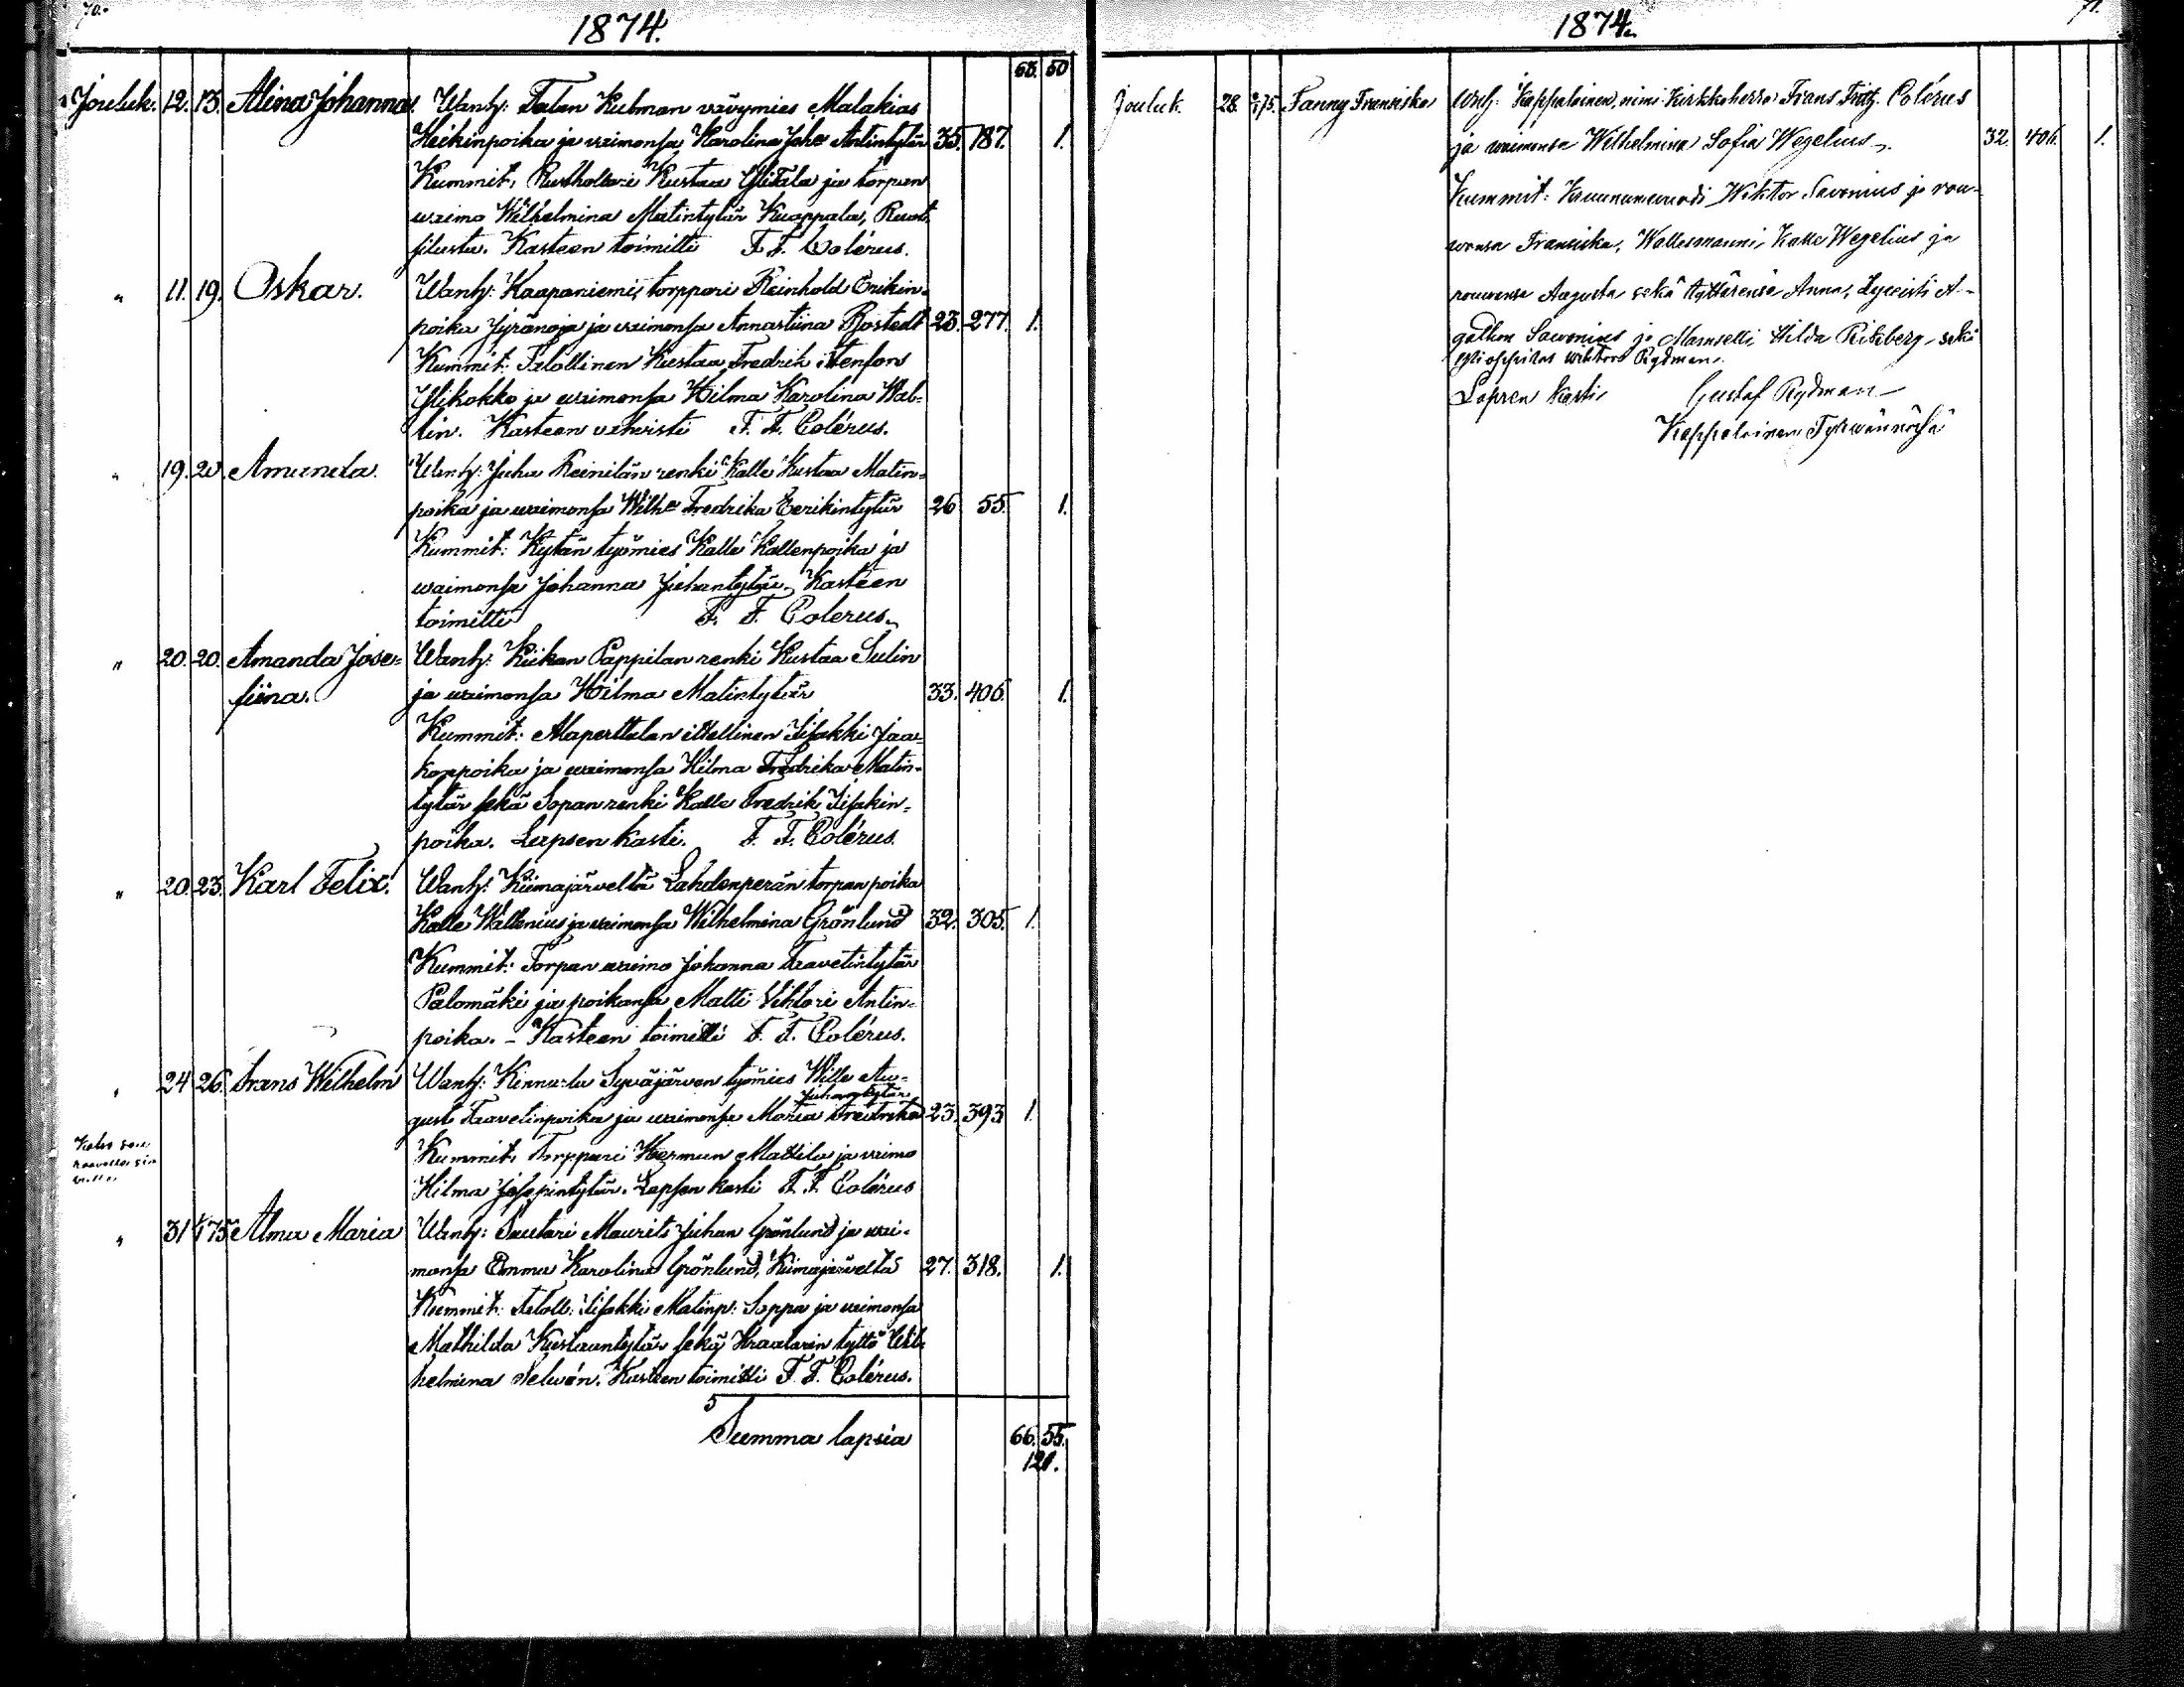 70.
1874.
63. 50
Jouluk. 12. 13. Alina Johanna. Wanh: Talan Kulman vävymies Malakias
Heikinpoika ja waimonsa Karolina Joh:a Antintytär 35. 187. 1.
Kummit: Rusthollari Kustaa Ylitalo ja torpan
waimo Wilhelmina Matintytär Kuoppala,
Kasteen toimitti F. F. Colérus.
" 11. 19. Oskar. Wanh: Kaapaniemi, torppari Reinhold Erikin-
poika Jyränoja ja waimonsa Annastiina Rostedt 23. 277. 1.
Kummit: Talollinen Kustaa Fredrik Stenfors
Ylikokko ja waimonsa Hilma Karolina Wal-
lin. Kasteen vahvisti F. F. Colérus.
" 19. 20. Amanda. Wanh: Juha Reinilän renki Kalle Kustaa Matin-
poika ja waimonsa Wilh:a Fredrika Eerikintytär 26 55. 1.
Kummit: Kytän työmies Kalle Kallenpoika ja
waimonsa Johanna Juhantytär. Kasteen
toimitti F. F. Colerus.
" 20. 20. Amanda Jose- Wanh: Kiikan Pappilan renki Kustaa Sulin
fiina. ja waimonsa Hilma Matintytär 33. 406. 1.
Kummit: Alaperttulan itsellinen Iisakki Jaa-
konpoika ja waimonsa Hilma Fredrika Matin-
tytär sekä Sopan renki Kalle Fredrik Iisakin-
poika. Lapsen kasti. F. F. Colérus.
" 20. 23. Karl Felix. Wanh: Kiimajärveltä Lahdenperän torpan poika
Kalle Wallenius ja waimonsa Wilhelmina Grönlund 32. 305. 1.
Kummit: Torpan waimo Johanna Taavetintytär
Palomäki ja poikansa Matti Vihtori Antin-
poika. - Kasteen toimitti F. F. Colérus.
" 24 26. Frans Wilhelm Wanh: Kinnala Syväjärven työmies Wille Au-
Juhantytär
gust Taavetinpoika ja waimonsa Maria Fredrika 23. 393 1.
Kummit: Torppari Herman Mattila ja waimo
Hilma Josepintytär. Lapsen kasti F. F. Colérus
" 31 1/1 75 Alma Maria Wanh: Suutari Maurits Juhan Grönlund ja wai-
monsa Emma Karolina Grönlund, Kiimajärveltä 27. 318. 1.
Kummit: Taloll: Iisakki Matinp: Soppa ja waimonsa
Mathilda Kustaantytär sekä Kraatarin tyttö Wil-
helmina Kasteen toimitti F. F. Colérus.
Summa lapsia 66. 55.
121.
71.
1874.
Jouluk. 28. 75. Fanny Fransiska Wnh: Kappalainen, nimi. Kirkkoherra Frans Fritz. Colérus
ja waimonsa Wilhelmina Sofia Wegelius. 32. 406. 1.
Kummit: Kruununwouti Wiktor Savonius ja rou-
wansa Fransiska, Wallesmanni Kalle Wegelius ja
rouwansa Augusta sekä tyttärensä Anna, Lyseisti A-
gathon Sawonius ja Mamselli Hilda Ritzberg sekä
Ylioppilas Wiktor Rydman.
Lapsen kasti Gustaf Rydman
Kappalainen Tyrwäännössä